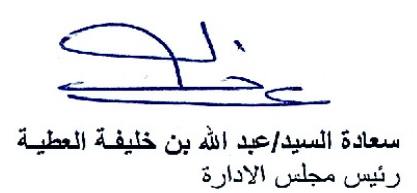 سعادة السيد/عبد الله بن خليفة العطية
رئيس مجلس الادارة